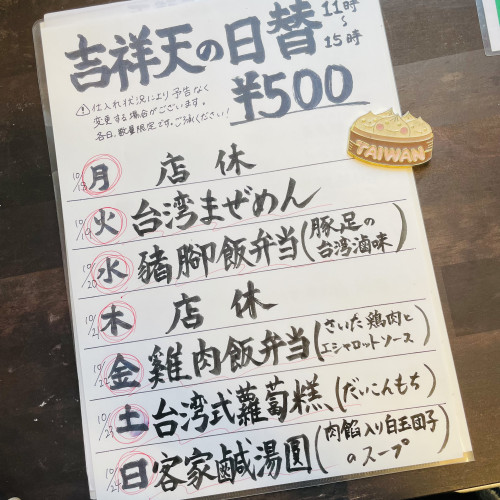 吉祥天の日替
11時
〜
15時
¥500
①仕入れ状況により予告なく
変更する場合がございます。
各日、数量限定です。ご了承ください!
TAIWAN
10/18 月 店休
10/19 火 台湾まぜめん
10/20 水 豬腳飯弁当(豚足の台湾滷味)
10/21 木 店休
10/22 金 雞肉飯弁当(さいた鶏肉とエシャロットソース)
10/23 土 台湾式蘿蔔糕(だいこんもち)
10/24 日 客家鹹湯圓(肉餡入り白玉団子のスープ)